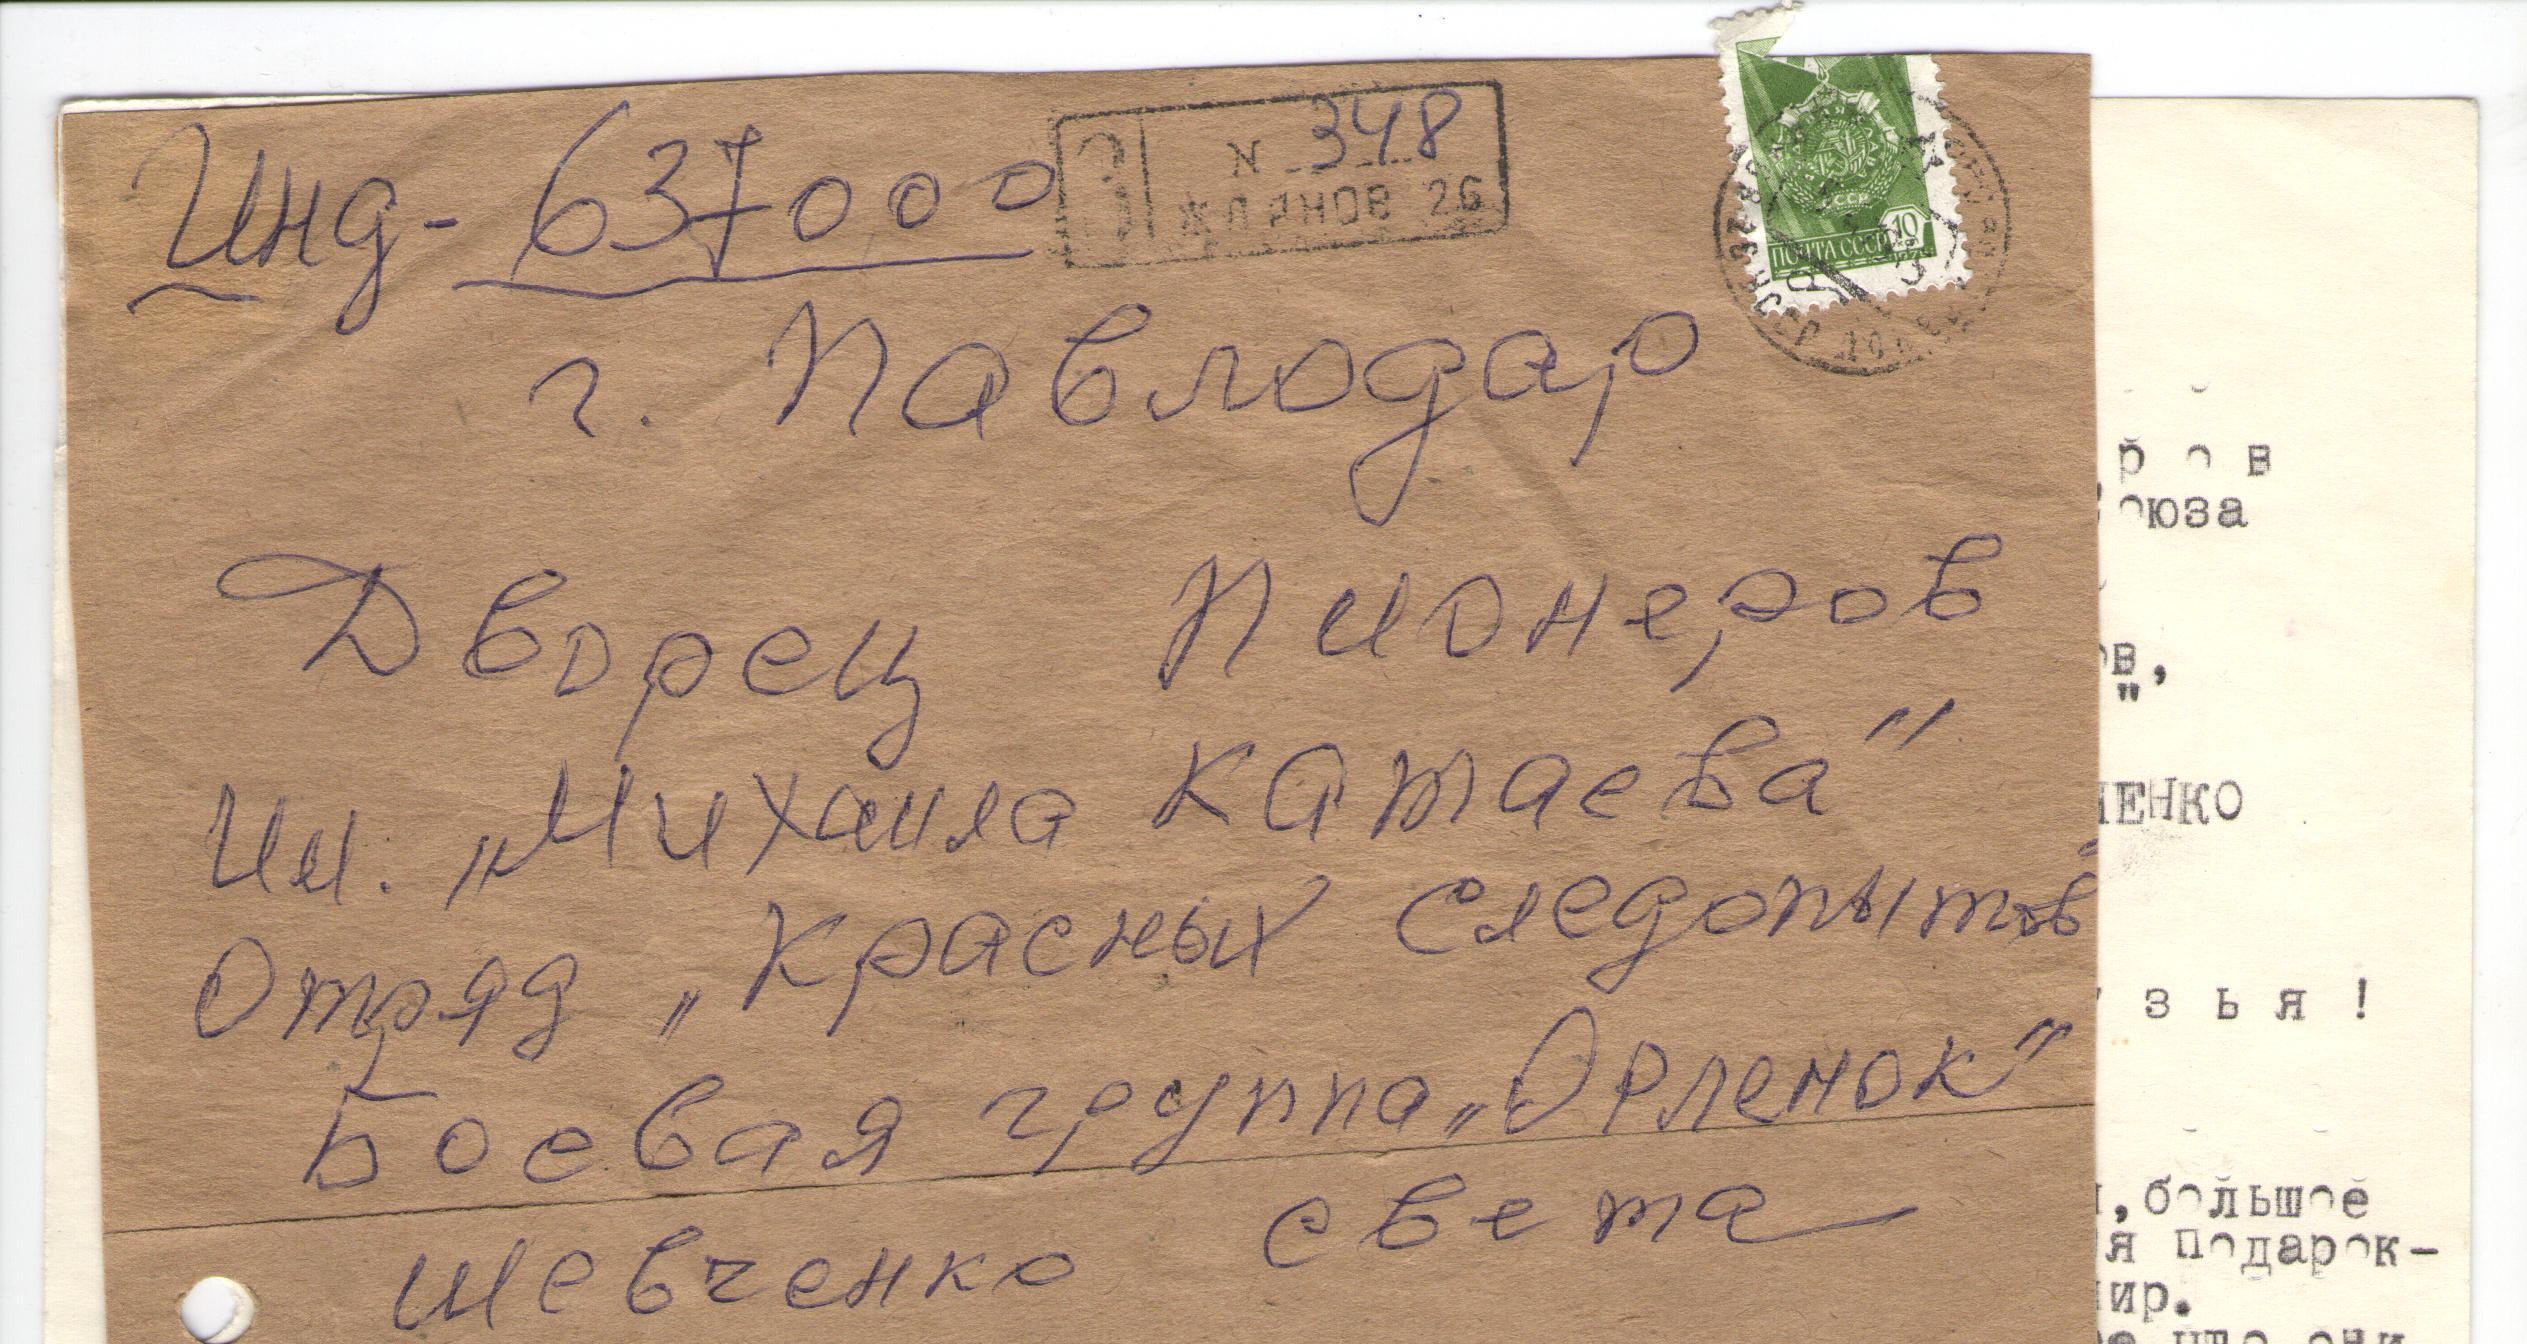 Инд- 637000
З № 348
ЖДАНОВ 26
СССР
10
ПОЧТА СССР
г. Павлодар
Дворец Пионеров
Им. „Михаила Катаева"
Отряд „Красных Следопытов"
Боевая группа „Орленок"
Шевченко Света
ров
союза
ов,
"
ЧЕНКО
узья!
,большое
я подарок-
ир.
что они